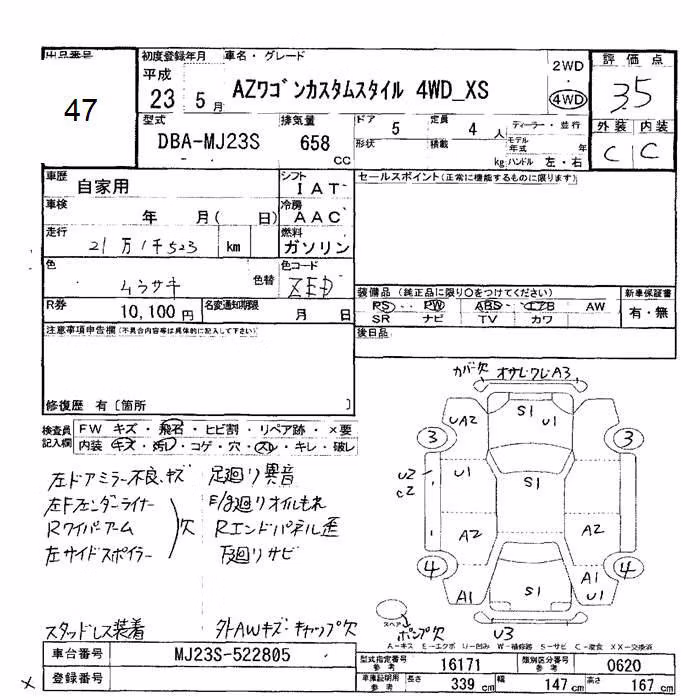 出品番号
47
初度登録年月
平成
23 5 月
車名・グレード
AZワゴンカスタムスタイル 4WD_XS
2WD
4WD
評価点
3.5
外装 内装
C C
型式
DBA-MJ23S
排気量
658
CC
ドア
5
定員
4 人
ディーラー・並行
形状
積載
kg
モデル年式
年
ハンドル 左・右
車歴
自家用
シフト
IAT
車検
年 月( 日)
冷房
AAC
走行
21万1千523
km
燃料
ガソリン
色
ムラサキ
色替
色コード
R券
10,100円
名変通知期限
月 日
セールスポイント(正常に機能するものに限ります)
装備品(純正品に限り○をつけてください)
PS・PW ABS・エアB AW
SR ナビ TV カワ
新車保証書
有・無
後日品
注意事項申告欄(不具合内容等は具体的に記入して下さい)
修復歴 有〔箇所 〕
検査員記入欄
FW キズ・飛石・ヒビ割・リペア跡・×要
内装 キズ・汚レ・コゲ・穴・スレ・キレ・破レ
左ドアミラー不良、キズ 足廻り異音
左Fフェンダーライナー
Rワイパーアーム
左サイドスポイラー
欠
E/g廻りオイルもれ
Rエンドパネル歪
下廻りサビ
スタッドレス装着 外AWキズ・キャップ欠
カバー欠 オサレ・ワレ・A3
S1
U1
UA2
3
3
U2
C2
U1
S1
A2
A2
4
4
A1
S1
A1
U1
スペア
ポンプ欠
U3
A-キズ E-エクボ U-凹み W-補修跡 S-サビ C-腐食 XX-交換済
車台番号
MJ23S-522805
登録番号
×
型式指定番号
参考
16171
類別区分番号
参考
0620
車庫証明用
参考
長さ
339 cm
幅
147 cm
高さ
167 cm